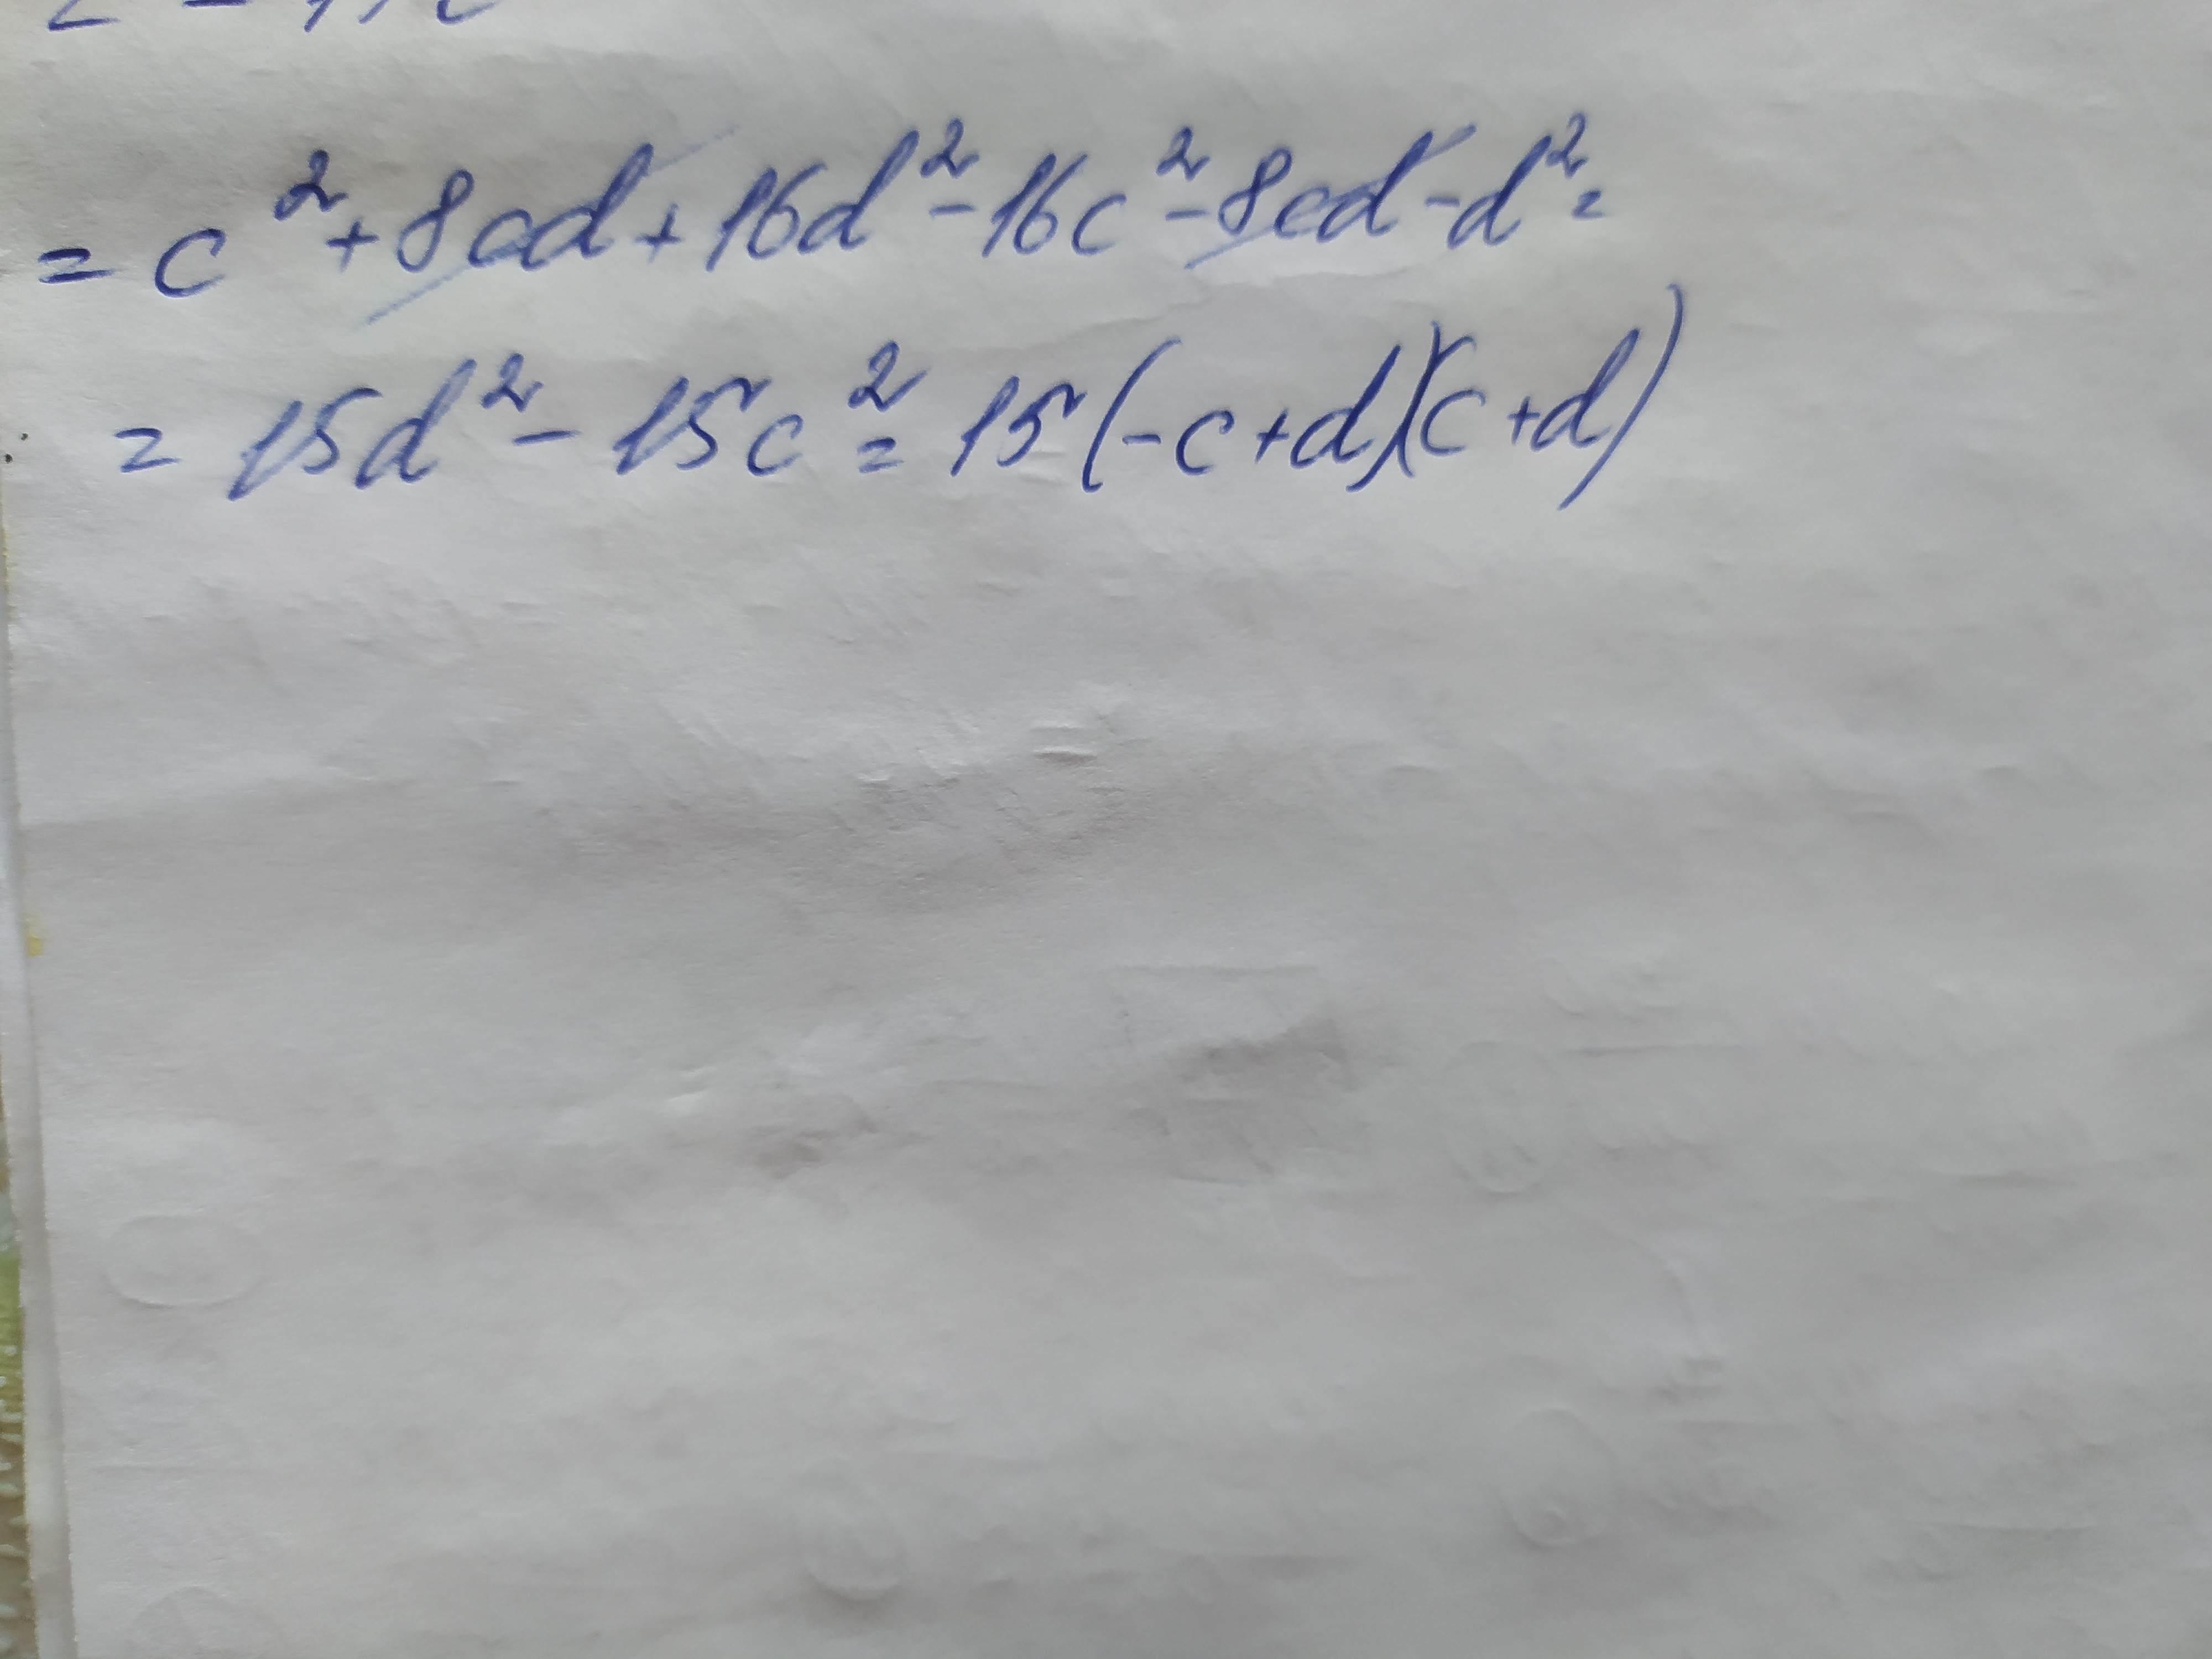 = c² + 8cd + 16d² - 16c² - 8cd - d² =
= 15d² - 15c² = 15(-c+d)(c+d)